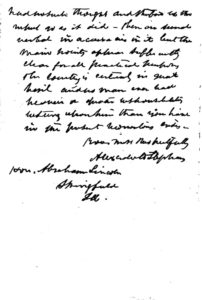 as the
as it did -
verbal inaccuracies in it but the
main points appear sufficiently
clear for all practical purposes
The Country is certainly in great
peril and no man ever had
heavier or greater responsibilities
resting upon him than you have
in the present momentous crisis -
Yours most Respectfully
Alexander H Stephens
Hon. Abraham Lincoln
Springfield
Ill